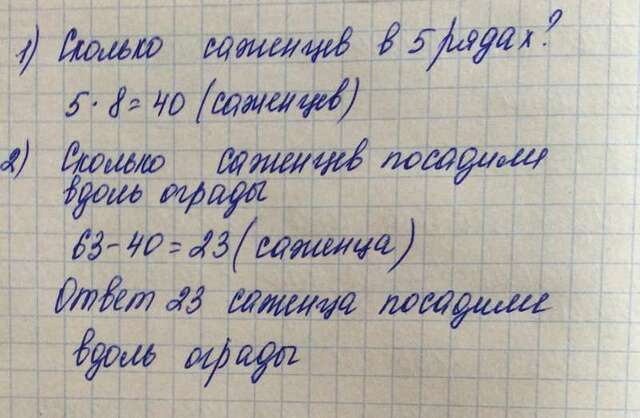 1) Сколько саженцев в 5 рядах?
5 · 8 = 40 (саженцев)
2) Сколько саженцев посадили
вдоль ограды
63 - 40 = 23 (саженца)
Ответ 23 саженца посадили
вдоль ограды